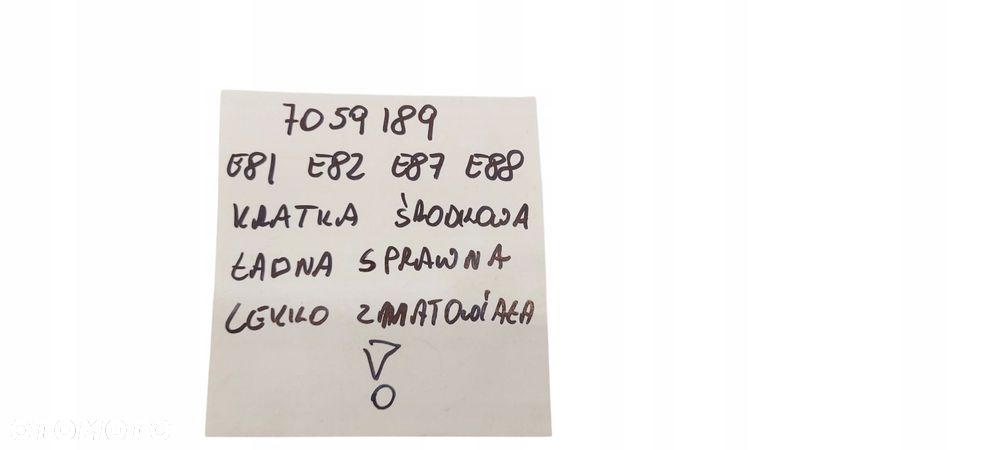 7059189
E81 E82 E87 E88
KRATKA ŚRODKOWA
ŁADNA SPRAWNA
LEKKO ZMATOWIAŁA
!
OTOMOTO